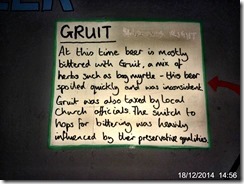 GRUIT
At this time beer is mostly
bittered with Gruit, a mix of
herbs such as bog myrtle - this beer
spoiled quickly and was inconsistent.
Gruit was also taxed by local
Church officials. The switch to
hops for bittering was heavily
influenced by their preservative qualities.
18/12/2014 14:56